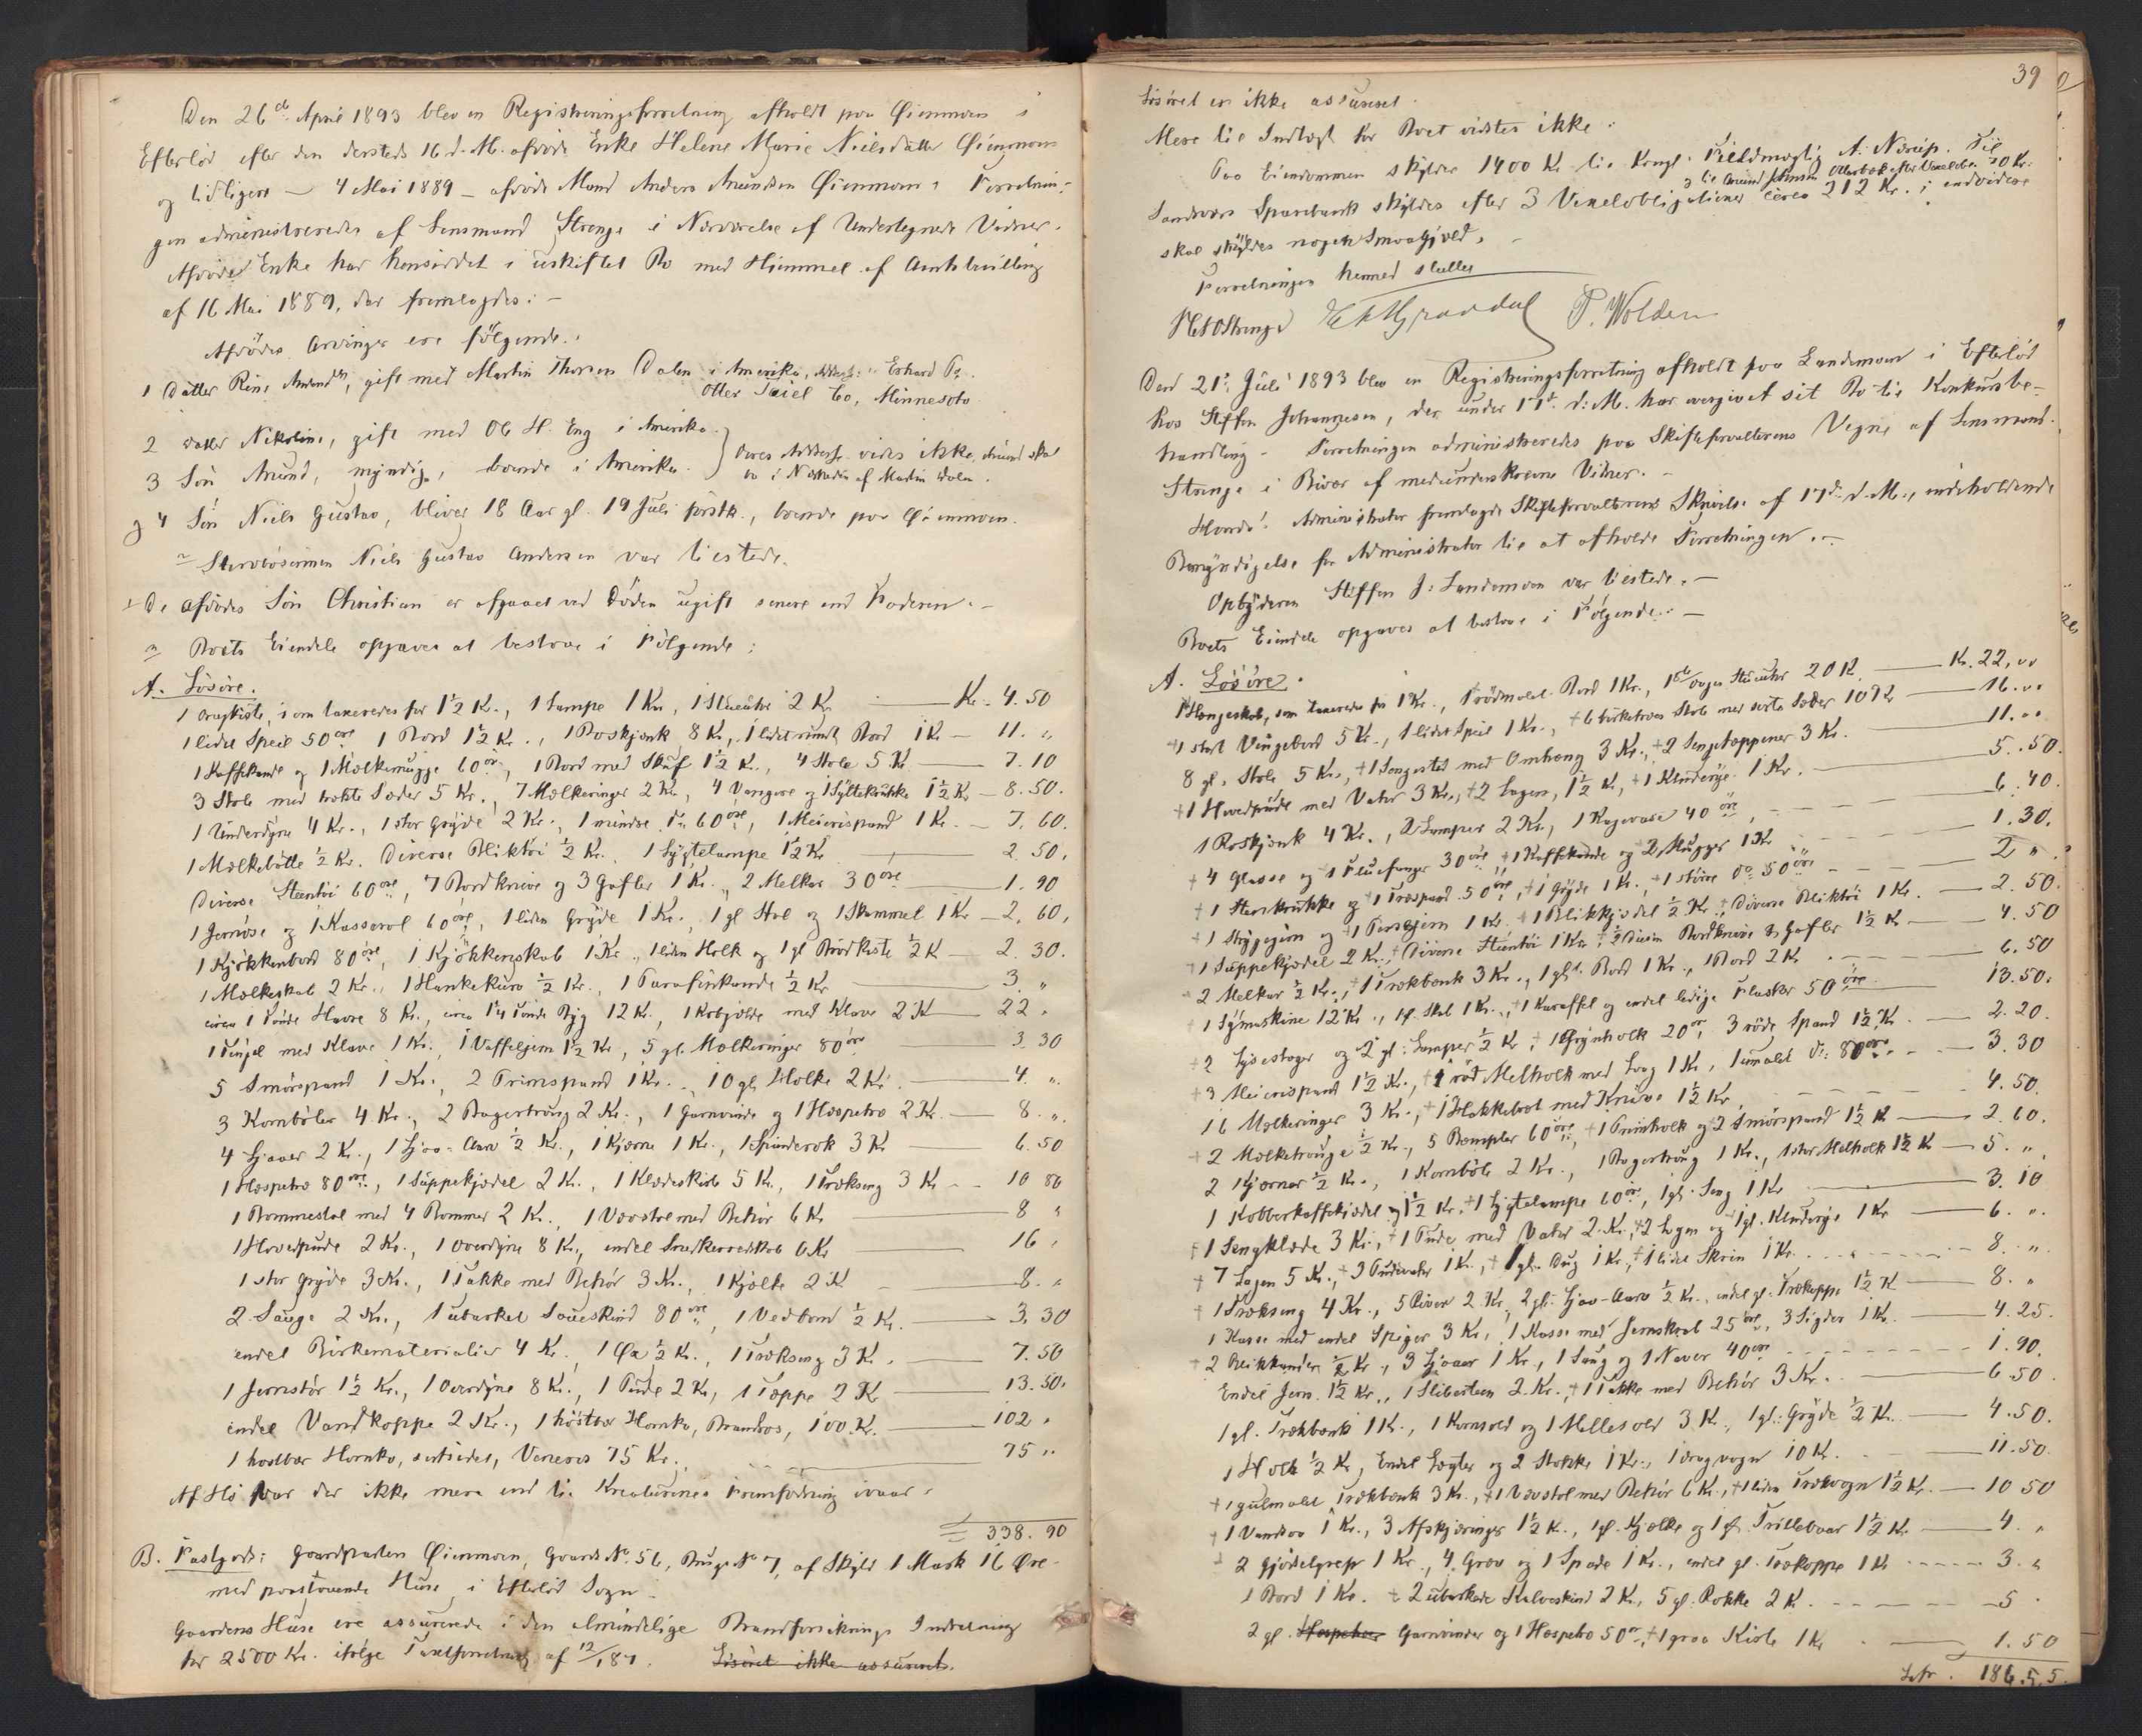 Den 26de April 1893 blev en Registreringsforretning afholdt paa Øienmoen i
Efterløt efter den dersteds 16 d. M. afdøde Enke Helene Marie Nielsdatter Øienmoen
og tidligere – 4 Mai 1889 – afdøde Mand Anders Amundsen Øienmoen. Forretnin-
gen administreredes af Lensmand Strenge i Nærværelse af Undertegnede Vidner.
Afdøde Enke har hensiddet i uskiftet Bo med Hjemmel af Amtsbevilling
af 16 Mai 1889, der fremlagdes. –
Afdødes Arvinger ere følgende:
1 Datter Rine Amundsd., gift med Martin Thorsen Dalen i Amerika, Adresse: Erhard Po.
Otter Taiel Co, Minnesota
2 Datter Nikoline, gift med Ole H. Eng i Amerika.
3 Søn Amund, myndig, boende i Amerika. } Deres Adresse vides ikke. Amund skal
bo i Nærheden af Martin Dalen.
og 4 Søn Niels Gustav, bliver 18 Aar gl. 19 Juli førstk., boende paa Øienmoen.
Stervbosønnen Niels Gustav Andersen var tilstede.
De afdødes Søn Christian er afgaaet ved Døden ugift senere end Faderen. –
Boets Eiendele opgaves at bestaae i Følgende:
A. Løsøre.
1 Dragkiste, som taxeredes for 1½ Kr., 1 Lampe 1 Kr., 1 Stueuhr 2 Kr. — Kr. 4.50
1 lidet Speil 50 øre, 1 Bord 1½ Kr., 1 Roskjænk 8 Kr., 1 lidet rundt Bord 1 Kr — 11. „
1 Kaffekande og 1 Mælkemugge 60 øre, 1 Bord med Skuf 1½ Kr., 4 Stole 5 Kr — 7.10
3 Stole med trækte Sæder 5 Kr., 7 Mælkeringer 2 Kr., 4 og 1 Syltekrukke 1½ Kr — 8.50.
1 Underdyne 4 Kr., 1 stor Gryde 2 Kr., 1 mindre do 60 øre, 1 Meierispand 1 Kr. — 7.60.
1 Mælkebøtte ½ Kr. Diverse Bliktøi ½ Kr. 1 Lygtelampe 1½ Kr — 2.50.
Diverse Steentøi 60 øre, 7 Bordknive og 3 Gafler 1 Kr., 2 Melkar 30 øre — 1.90
1 og 1 Kasserol 60 øre, 1 liden Gryde 1 Kr., 1 gl Stol og 1 Skammel 1 Kr — 2.60.
1 Kjøkkenbord 80 øre, 1 Kjøkkenskab 1 Kr., 1 liden Holk og 1 gl Brødkiste ½ K — 2.30.
1 Mælkeskab 2 Kr., 1 Hankekurv ½ Kr., 1 Parafinkande ½ Kr — 3. „
circa 1 Tønde Havre 8 Kr., circa 1¼ Tønde Byg 12 Kr., 1 Kobjelde med Klave 2 K — 22 „
1 med Klave 1 Kr., 1 Vaffeljern 1½ Kr, 5 gl. Mælkeringer 80 øre — 3.30
5 Smørspand 1 Kr., 2 Primspand 1 Kr., 10 gl. Holke 2 Kr. — 4. „
3 Kornbøler 4 Kr., 2 Bagertroug 2 Kr., 1 Garnvinde og 1 Hespetræ 2 Kr. — 8. „
4 Ljaaer 2 Kr., 1 Ljaa-Aarv ½ Kr., 1 Kjærne 1 Kr., 1 Spinderok 3 Kr — 6.50
1 Hespetræ 80 øre, 1 Suppekjædel 2 Kr., 1 Klædeskiste 5 Kr., 1 Træksæng 3 Kr — 10 80
1 Bommestol med 4 Bommer 2 Kr., 1 Vævstol med Behør 6 Kr — 8 „
1 Hovedpude 2 Kr., 1 Overdyne 8 Kr., endel Snedkerredskab 6 Kr — 16 „
1 stor Gryde 3 Kr., 1 Takke med Behør 3 Kr., 1 Kjælke 2 K — 8. „
2 Sauge 2 Kr., 1 ubarket Saueskind 80 øre, 1 Vedbord ½ Kr. — 3.30
endel Birkematerialier 4 Kr. 1 Øx ½ Kr., 1 Træksæng 3 K. — 7.50
1 Jernstør 1½ Kr., 1 Overdyne 8 K., 1 Pude 2 Kr., 1 Tæppe 2 Kr — 13.50.
endel Vandkoppe 2 Kr., 1 høstbær Hornko, Brandros, 100 Kr. — 102 „
1 haatbær Hornko, sortsidet, Veneros 75 Kr. — 75 „
Af Hø var der ikke mere end til Kreaturenes Fremfødning ivaar.
338.90
B. Fastgods: Gaardparten Øienmoen, Gaards No. 56, Brugs No 7, af Skyld 1 Mark 16 Øre
med paastaaende Huse i Efterløt Sogn.
Gaardens Huse ere assurerede i den almindelige Brandforsikrings Indretning
for 2500 Kr. ifølge Taxtforretning af Løsøret ikke assureret.
39
Løsøret er ikke assureret.
Mere til Indtægt for Boet vidstes ikke.
Paa Eiendommen skyldes 1400 Kr. til Kongl. Fuldmægtig A. Nørup. Til
og til Amund Johnsen Vexelobl. 70 Kr.
Sandsvær Sparebank skyldes efter 3 Vexelobligationer circa 212 Kr.; endvidere
skal skyldes nogen Smaagjæld.
Forretningen hermed sluttet
Strenge E. A. Graadal P. Wolden
Den 21de Juli 1893 blev en Registreringsforretning afholdt paa Landemoen i Efterløt
hos Steffen Johannesen, der under 17de d. M. har overgivet sit Bo til Konkursbe-
handling. – Forretningen administreredes paa Skifteforvalterens Vegne af Lensmand
Strenge i Bivær af medunderskrevne Vidner. –
Hvorda! Administrator fremlagde Skifteforvalterens Skrivelse af 17de d. M., indeholdende
Bemyndigelse for Administrator til at afholde Forretningen. –
Opbyderen Steffen J. Landemoen var tilstede. –
Boets Eiendele opgaves at bestaae i Følgende: –
A. Løsøre.
1 Hængeskab, som taxeredes for 1 Kr., 1 rødmalet Bord 1 Kr., 1 8te Dages Stueuhr 20 K — Kr. 22. „
+1 stort Vingebord 5 Kr., 1 lidet Speil 1 Kr., +6 birketræes Stole med sorte Sæder 10 Kr — 16. „
8 gl. Stole 5 Kr., +1 Sengested med Omhæng 3 Kr., +2 Sengetæpper 3 Kr. — 11. „
+1 Hovedpude med Vaar 3 Kr., +2 Lagen, 1½ Kr, +1 Kludrye 1 Kr. — 5.50.
1 Roskjænk 4 Kr., 2 Lamper 2 Kr., 1 Kagevase 40 øre — 6.40.
+4 Glasse og +1 Fluefanger 30 øre, +1 Kaffekande og +2 Mugger 1 Kr — 1.30.
+1 Stenkrukke og +1 Træspand 50 øre, +1 Gryde 1 Kr., +1 større do 50 øre — 2 „
+1 Strygejern og +1 1 Kr. +1 Blikkjedel ½ Kr., + Diverse Bliktøi 1 Kr. — 2.50.
+1 Suppekjædel 2 Kr., + Diverse Steentøi 1 Kr. ½ Dusin Bordknive & Gafler 1½ Kr — 4.50
2 Melkar ½ Kr., +1 Trækbænk 3 Kr., 1 gl. Bord 1 Kr., 1 Bord 2 Kr — 6.50
+1 Symaskine 12 Kr., 1 gl. Skab 1 Kr., +1 Karaffel og endel ledige Flasker 50 øre — 13.50.
+2 Lysestager og 2 gl. Lamper ½ Kr + 1 Grynholk 20 øre, 3 røde Spand 1½ Kr. — 2.20.
+3 Meierispand 1½ Kr., +1 rød Melholk med Laag 1 Kr, 1 umalet do 80 øre — 3.30
16 Mælkeringer 3 Kr., +1 Hakkebræt med Knive 1½ Kr — 4.50.
+2 Mælketrouge ½ Kr., 5 60 øre, +1 Primholk og +2 Smørspand 1½ Kr — 2.60.
2 Kjærner ½ Kr., 1 Kornbøle 2 Kr., 1 Bagertroug 1 Kr., 1 stor Melholk 1½ Kr — 5. „
1 Kobberkaffekjædel 1½ Kr. +1 Lygtelampe 60 øre, 1 gl. Seng 1 Kr — 3.10
+1 Sengklæde 3 Kr., +1 Pude med Vaar 2 Kr., +2 Lagen og 1 gl. Kludrye 1 Kr — 6. „
+7 Lagen 5 Kr., +3 Pudevaar 1 Kr., +1 gl. Dug 1 Kr., +1 lidet Skrin 1 Kr. — 8. „
+1 Træksæng 4 Kr., 5 River 2 Kr., 2 gl. Ljaa-Aarv ½ Kr., endel gl. Trækoppe 1½ K — 8. „
1 Kasse med endel Spiger 3 Kr., 1 Kasse med Jernskrab 25 øre, 3 Sigder 1 Kr. — 4.25.
+2 Blikkander ½ Kr., 3 Ljaaer 1 Kr., 1 Saug og 1 Naver 40 øre — 1.90.
Endel Jern 1½ Kr., 1 Slibesteen 2 Kr., +1 Takke med Behør 3 Kr. — 6.50
1 gl. Trækbænk 1 Kr., 1 Kornsold og 1 Mellesold 3 Kr., 1 gl. Gryde ½ Kr. — 4.50.
1 Holk ½ Kr, Endel Lægter og 2 Stokke 1 Kr., 1 dragvogn 10 Kr. — 11.50.
+1 gulmalet Trækbænk 3 Kr., +1 Vævstol med Behør 6 Kr., +1 liden Trækvogn 1½ Kr. — 10 50
+1 Vandsaa 1 Kr., 3 Afskjæringer 1½ Kr., 1 gl. Kjælke og 1 gl. Trillebaar 1½ Kr — 4. „
2 Gjødelgrep 1 Kr., 4 Grev og 1 Spade 1 Kr., endel gl. Trækoppe 1 Kr — 3. „
1 Bord 1 Kr. +2 ubarkede Kalveskind 2 Kr., 5 gl. Rokke 2 K. — 5 „
2 gl. Hespetræ Garnvinder og 1 Hespetræ 50 øre, +1 graa Kiste 1 Kr — 1.50
Lstr. 186.55.